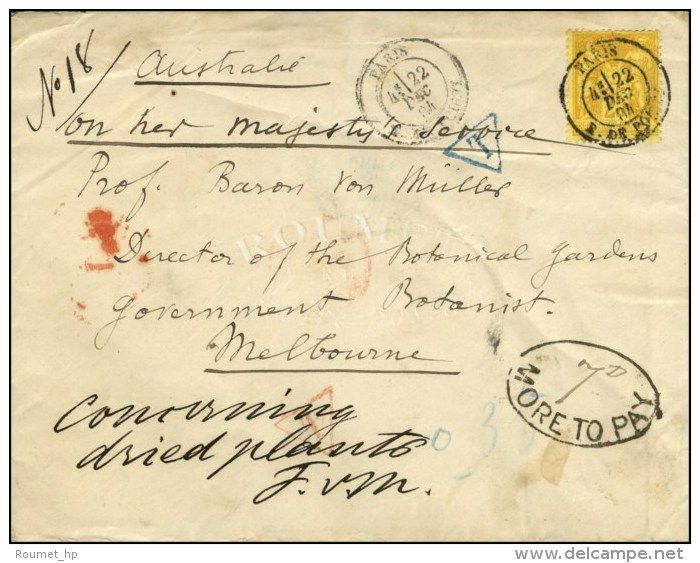 No 18
Australie
on her majesty's service
Prof. Baron von Müller
Director of the Botanical gardens
government Botanist.
Melbourne
concerning
dried plants
F.v.M.
PARIS
22
DEC
84
PARIS
22
DEC
84
R. DE
T
ROUMET
7D
MORE TO PAY
Roumet_hp
delcampe.net